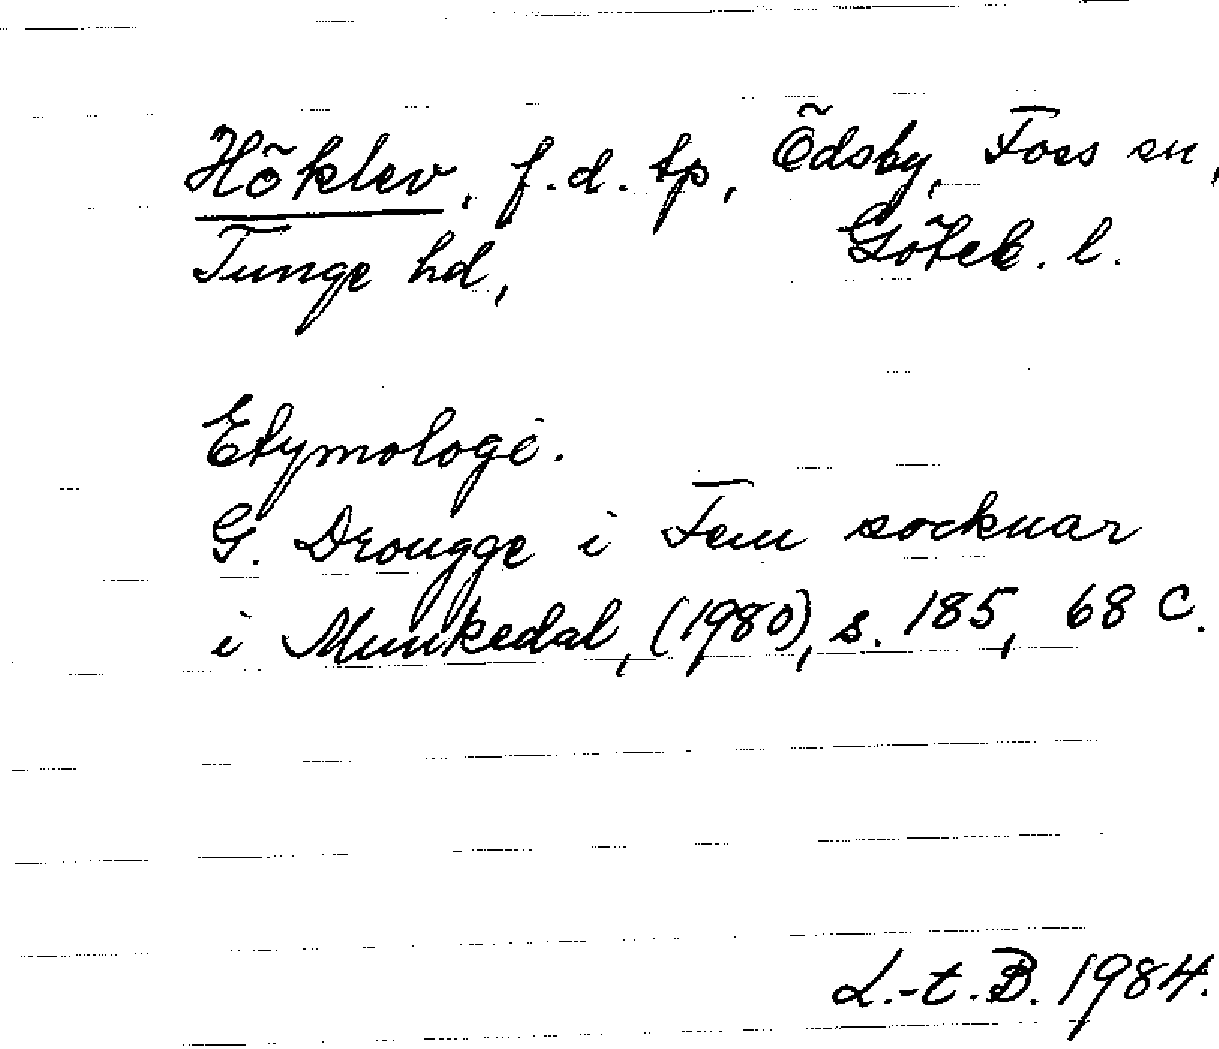 Höklev, f.d. tp, Ödsby, Foss sn,
Tunge hd, Göteb. l.
Etymologi.
G. Drougge i Fem socknar
i Munkedal, (1980), s. 185, 68 C.
L.-t. B. 1984.